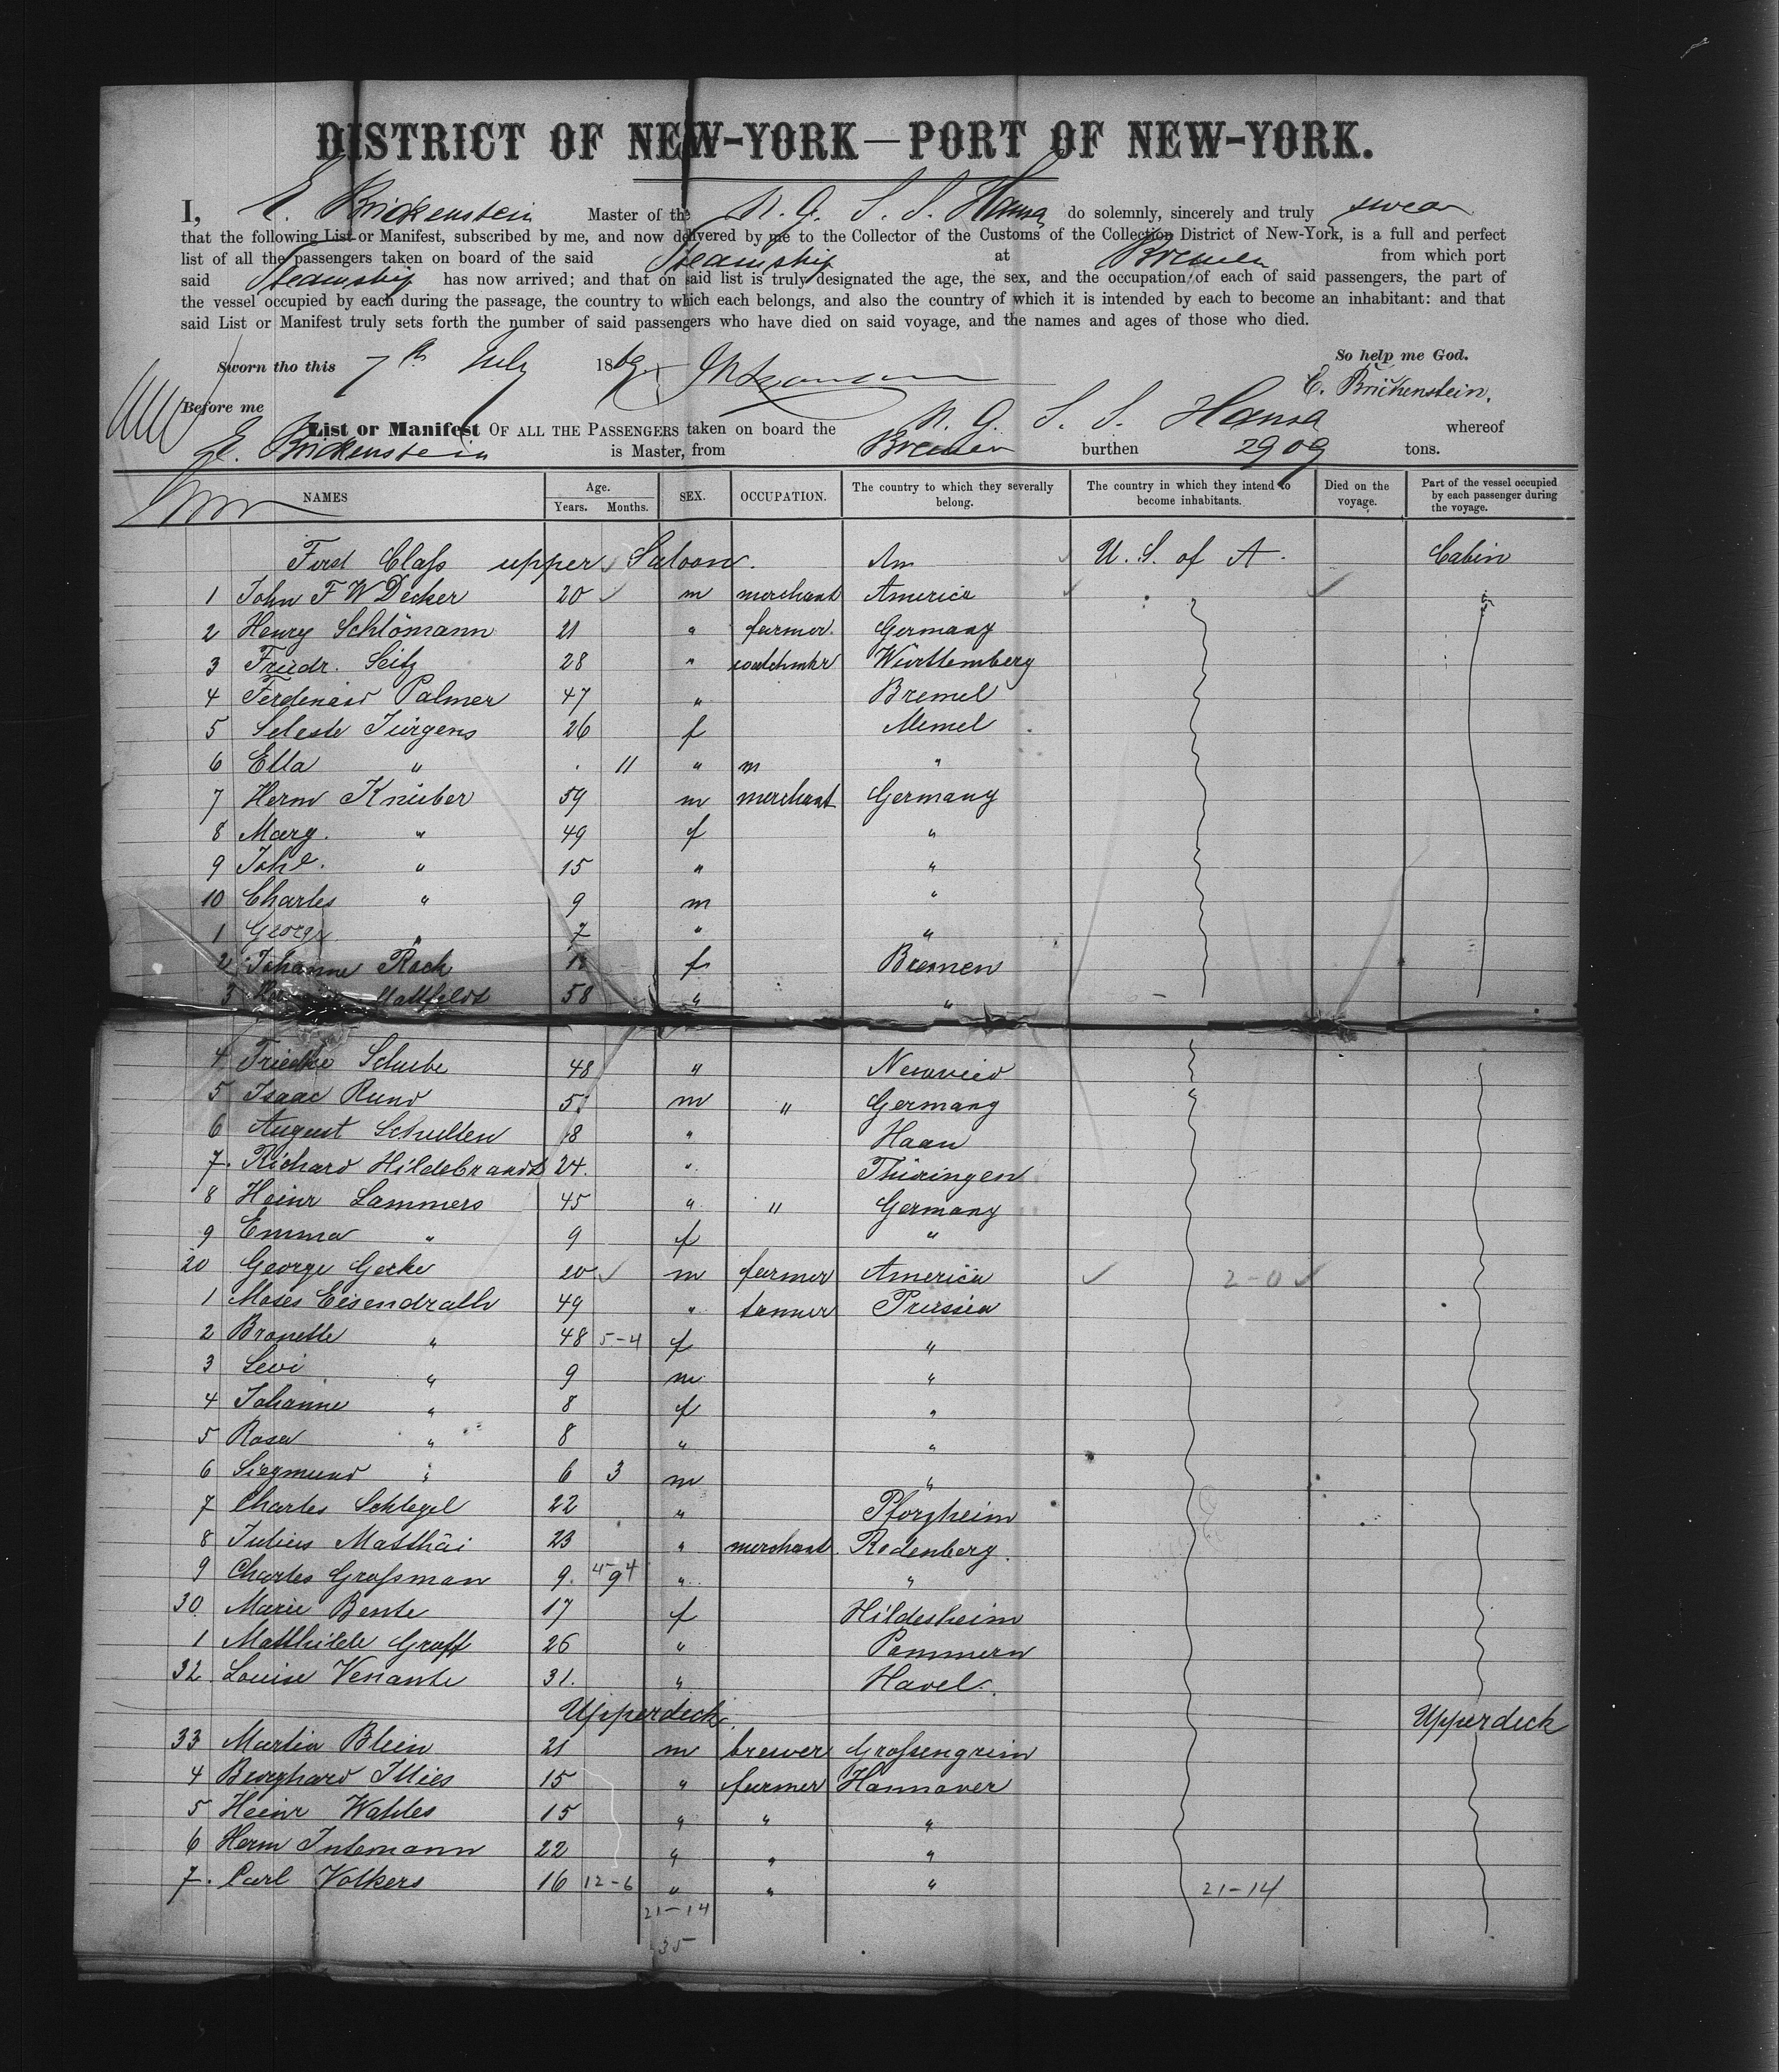 DISTRICT OF NEW-YORK—PORT OF NEW-YORK.
I, E. Brickenstein Master of the N. G. S. S. Hansa do solemnly, sincerely and truly swear
that the following List or Manifest, subscribed by me, and now delivered by me to the Collector of the Customs of the Collection District of New-York, is a full and perfect
list of all the passengers taken on board of the said Steamship at Bremen from which port
said Steamship has now arrived; and that on said list is truly designated the age, the sex, and the occupation of each of said passengers, the part of
the vessel occupied by each during the passage, the country to which each belongs, and also the country of which it is intended by each to become an inhabitant: and that
said List or Manifest truly sets forth the number of said passengers who have died on said voyage, and the names and ages of those who died.
So help me God.
Sworn tho this 7th July 1869.
E. Brickenstein.
Before me
List or Manifest OF ALL THE PASSENGERS taken on board the N. G. S. S. Hansa whereof
E. Brickenstein is Master, from Bremen burthen 2909 tons.
NAMES Age. Years. Months. SEX. OCCUPATION. The country to which they severally belong. The country in which they intend to become inhabitants. Died on the voyage. Part of the vessel occupied by each passenger during the voyage.
First Class upper Saloon. Am U. S. of A. Cabin
1 John F W Decker 20 m merchant America
2 Henry Schlömann 21 " farmer. Germany
3 Friedr. Seitz 28 " watchmkr Württemberg
4 Ferdinand Palmer 47 " Bremel
5 Seleste Jürgens 26 f Memel
6 Ella " . 11 " m "
7 Herm Knüber 59 m merchant Germany
8 Marg. " 49 f "
9 Johe. " 15 " "
10 Charles " 9 m "
1 George " 7 " "
2 Johanne Rach f Bremen
3 Mattfeldt 58 " "
4 Friedke Schube 48 " Neuwied
5 Isaac Rund m " Germany
6 August Schulten 18 " Haan
7. Richard Hildebrandt 24. " Thüringen
8 Heinr Lammers 45 " " Germany
9 Emma " 9 f "
20 George Gerke 20 m farmer America 2-0
1 Moses Eisendrath 49 " tanner Prussia
2 Bronette " 48 5-4 f "
3 Levi " 9 m "
4 Johanne " 8 f "
5 Rosa " 8 " "
6 Siegmund " 6 3 m "
7 Charles Schlegel 22 " Pforzheim
8 Julius Matthäi 23 " merchant Rodenberg.
9 Charles Großman 9. " "
30 Marie Bente 17 f Hildesheim
1 Mathilde Graff 26 " Pommern
32 Louise Venante 31. " Havel.
Upperdeck. Upperdeck
33 Martin Blein 21 m brewer Großengrein
4 Berghard Illies 15 " farmer Hannover
5 Heinr Wahles 15 " " "
6 Herm Intemann 22 " " "
7. Carl Volkers 16 12-6 " " " 21-14
21-14
35